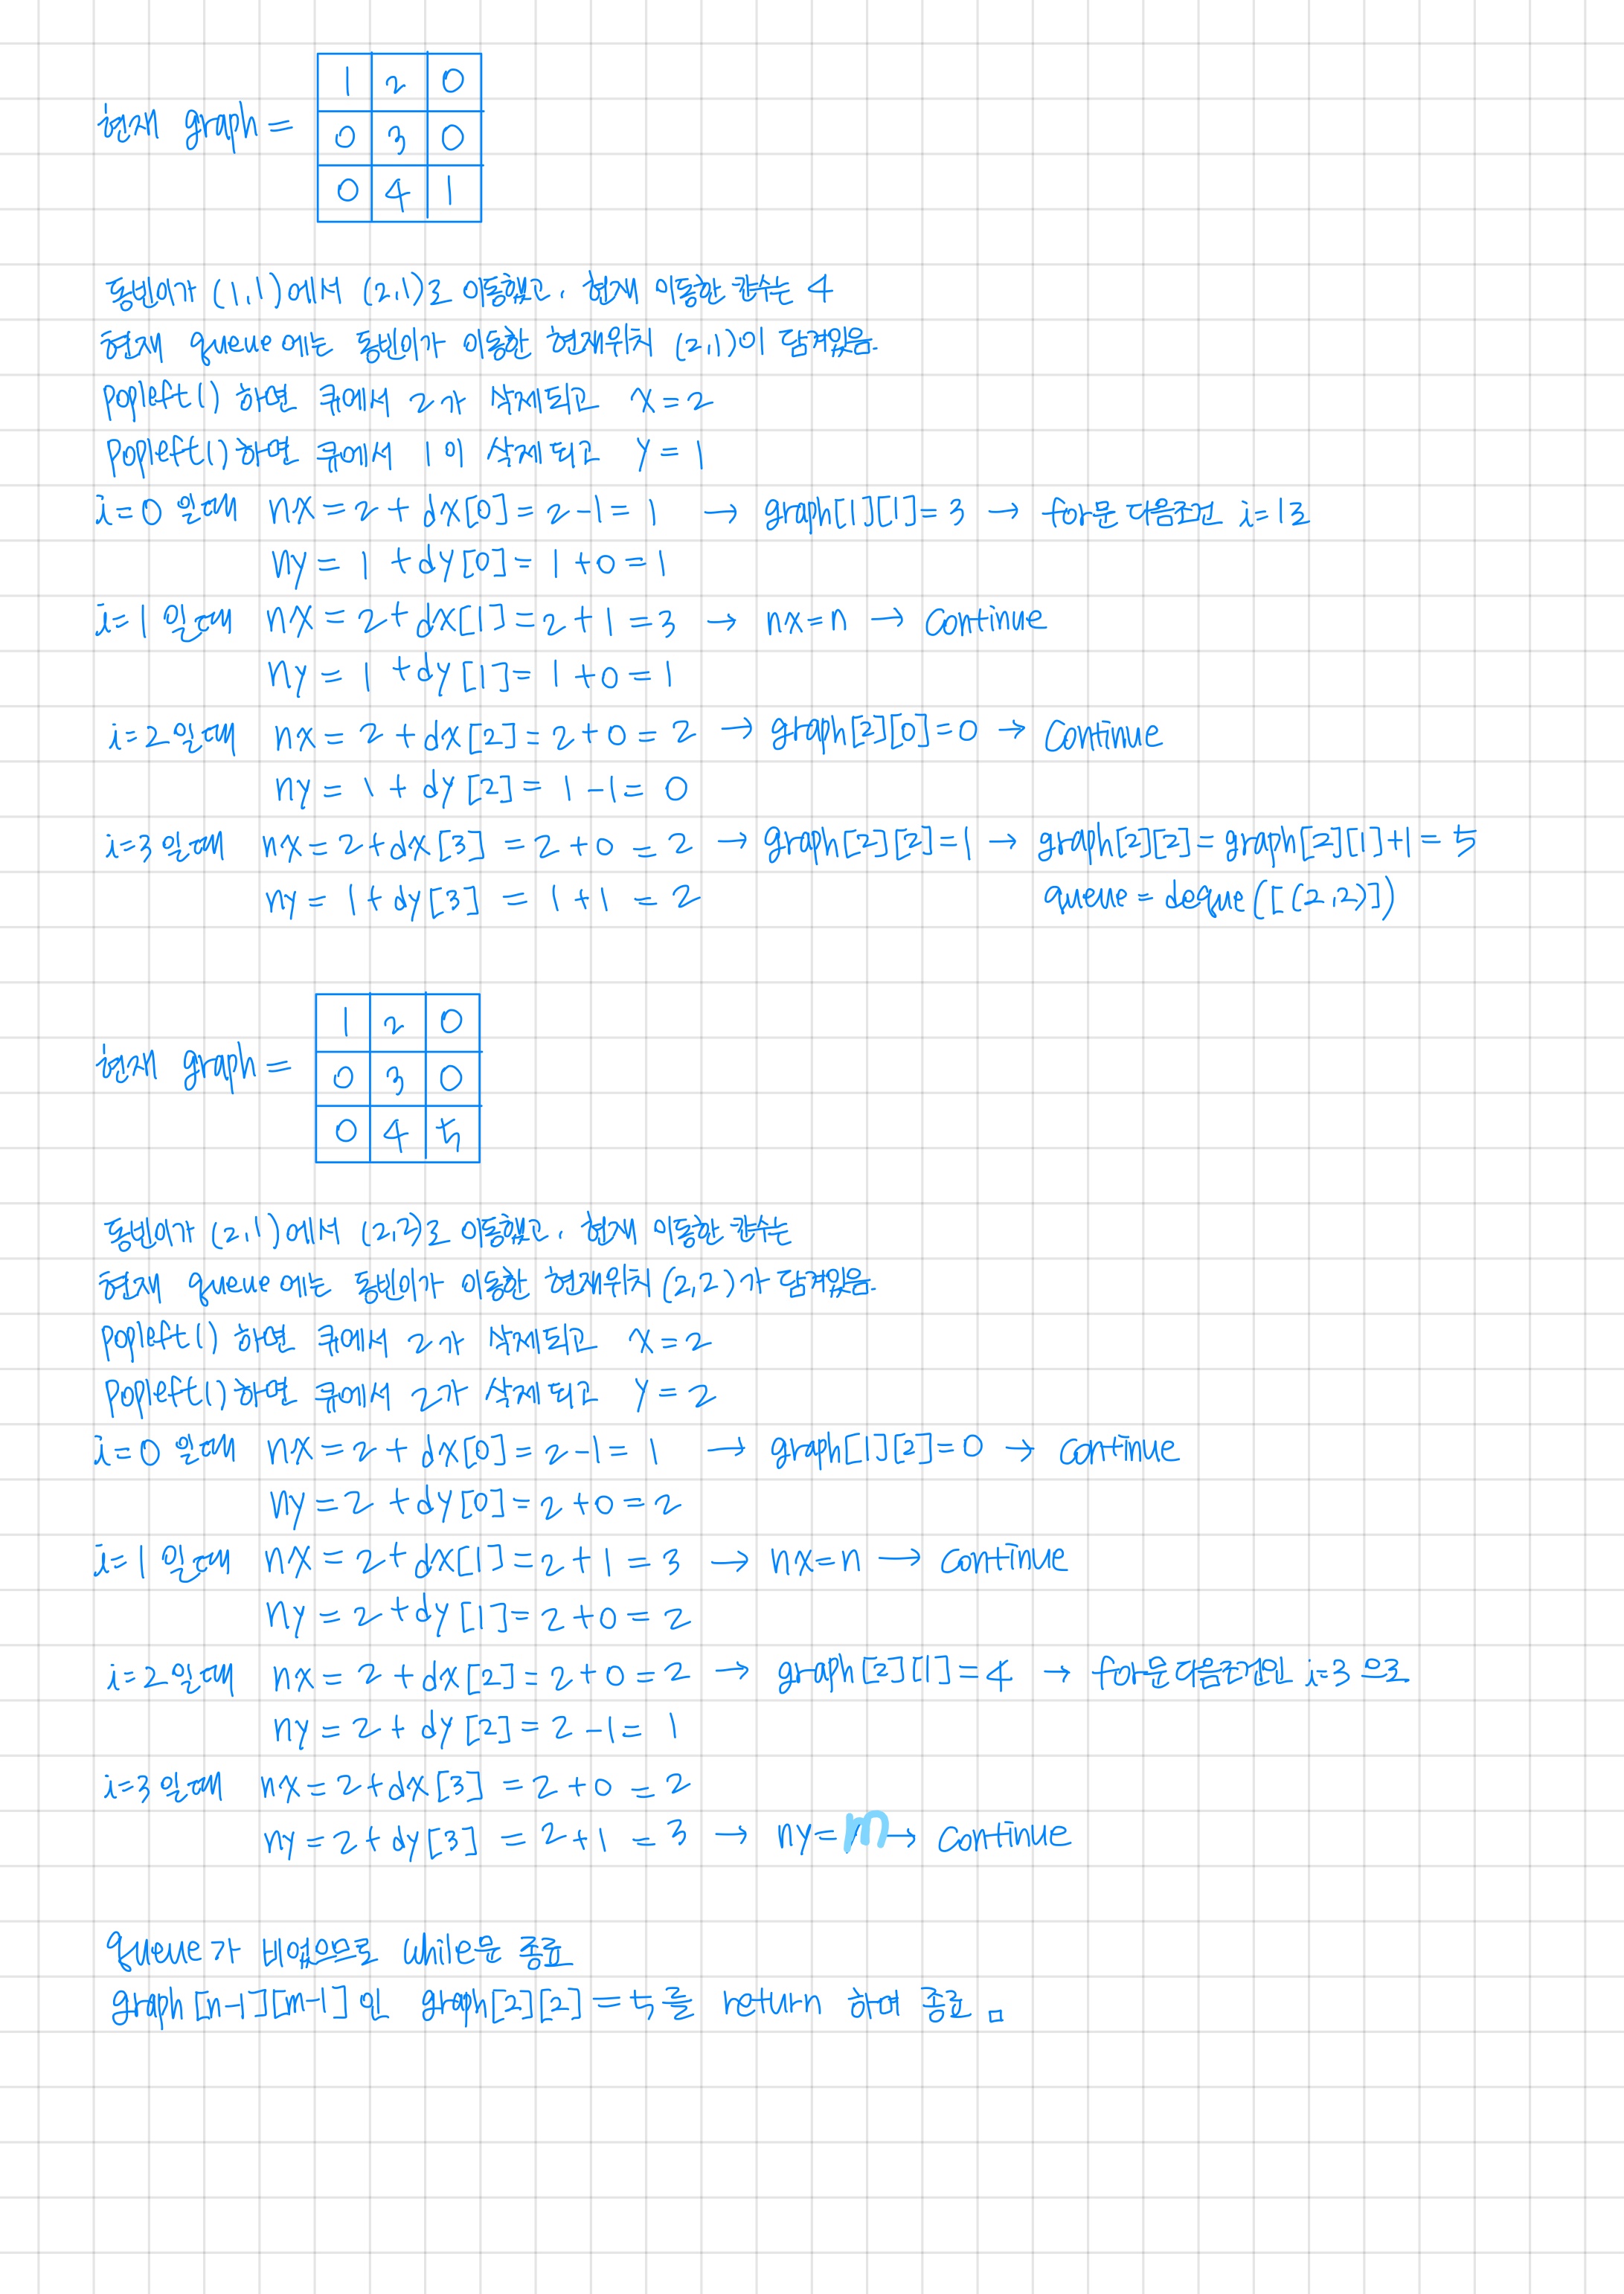 현재 graph =
1 2 0
0 3 0
0 4 1
동빈이가 (1,1)에서 (2,1)로 이동했고, 현재 이동한 칸수는 4
현재 queue에는 동빈이가 이동한 현재위치 (2,1)이 담겨있음.
popleft() 하면 큐에서 2가 삭제되고 x=2
popleft() 하면 큐에서 1이 삭제되고 y=1
i=0 일때 nx = 2 + dx[0] = 2-1 = 1 → graph[1][1]=3 → for문 다음조건 i=1로
ny = 1 + dy[0] = 1+0 = 1
i=1 일때 nx = 2 + dx[1] = 2+1 = 3 → nx=n → continue
ny = 1 + dy[1] = 1+0 = 1
i=2 일때 nx = 2 + dx[2] = 2+0 = 2 → graph[2][0]=0 → continue
ny = 1 + dy[2] = 1-1 = 0
i=3 일때 nx = 2+dx[3] = 2+0 = 2 → graph[2][2]=1 → graph[2][2]=graph[2][1]+1 = 5
ny = 1+dy[3] = 1+1 = 2 queue = deque([(2,2)])
현재 graph =
1 2 0
0 3 0
0 4 5
동빈이가 (2,1)에서 (2,2)로 이동했고, 현재 이동한 칸수는
현재 queue에는 동빈이가 이동한 현재위치 (2,2)가 담겨있음.
popleft() 하면 큐에서 2가 삭제되고 x=2
popleft() 하면 큐에서 2가 삭제되고 y=2
i=0 일때 nx = 2 + dx[0] = 2-1 = 1 → graph[1][2]=0 → continue
ny = 2 + dy[0] = 2+0 = 2
i=1 일때 nx = 2 + dx[1] = 2+1 = 3 → nx=n → continue
ny = 2 + dy[1] = 2+0 = 2
i=2 일때 nx = 2 + dx[2] = 2+0 = 2 → graph[2][1]=4 → for문 다음조건인 i=3 으로
ny = 2 + dy[2] = 2-1 = 1
i=3 일때 nx = 2+dx[3] = 2+0 = 2
ny = 2+dy[3] = 2+1 = 3 → ny=m → continue
queue가 비었으므로 while문 종료
graph[n-1][m-1]인 graph[2][2]=5를 return 하며 종료 □